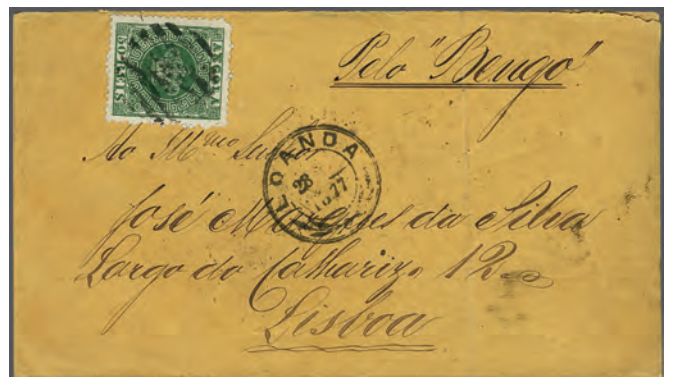 ANGOLA
50 REIS
Pelo "Bengo"
Ao Illmo Senhor
LOANDA
28
1877
José Marques da Silva
Largo do Calhariz, 12
Lisboa